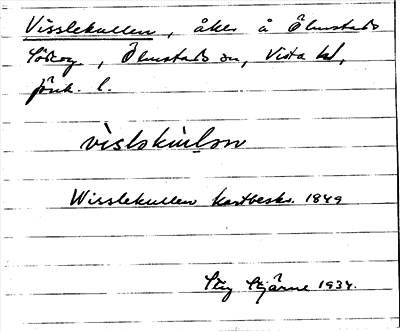 Visslekullen, åker å Ölmstads
Sörskog, Ölmstads sn, Vista hd,
Jönk. l.
visləkulən
Wisslekullen kartbeskr. 1849
Stig Stjärne 1934.